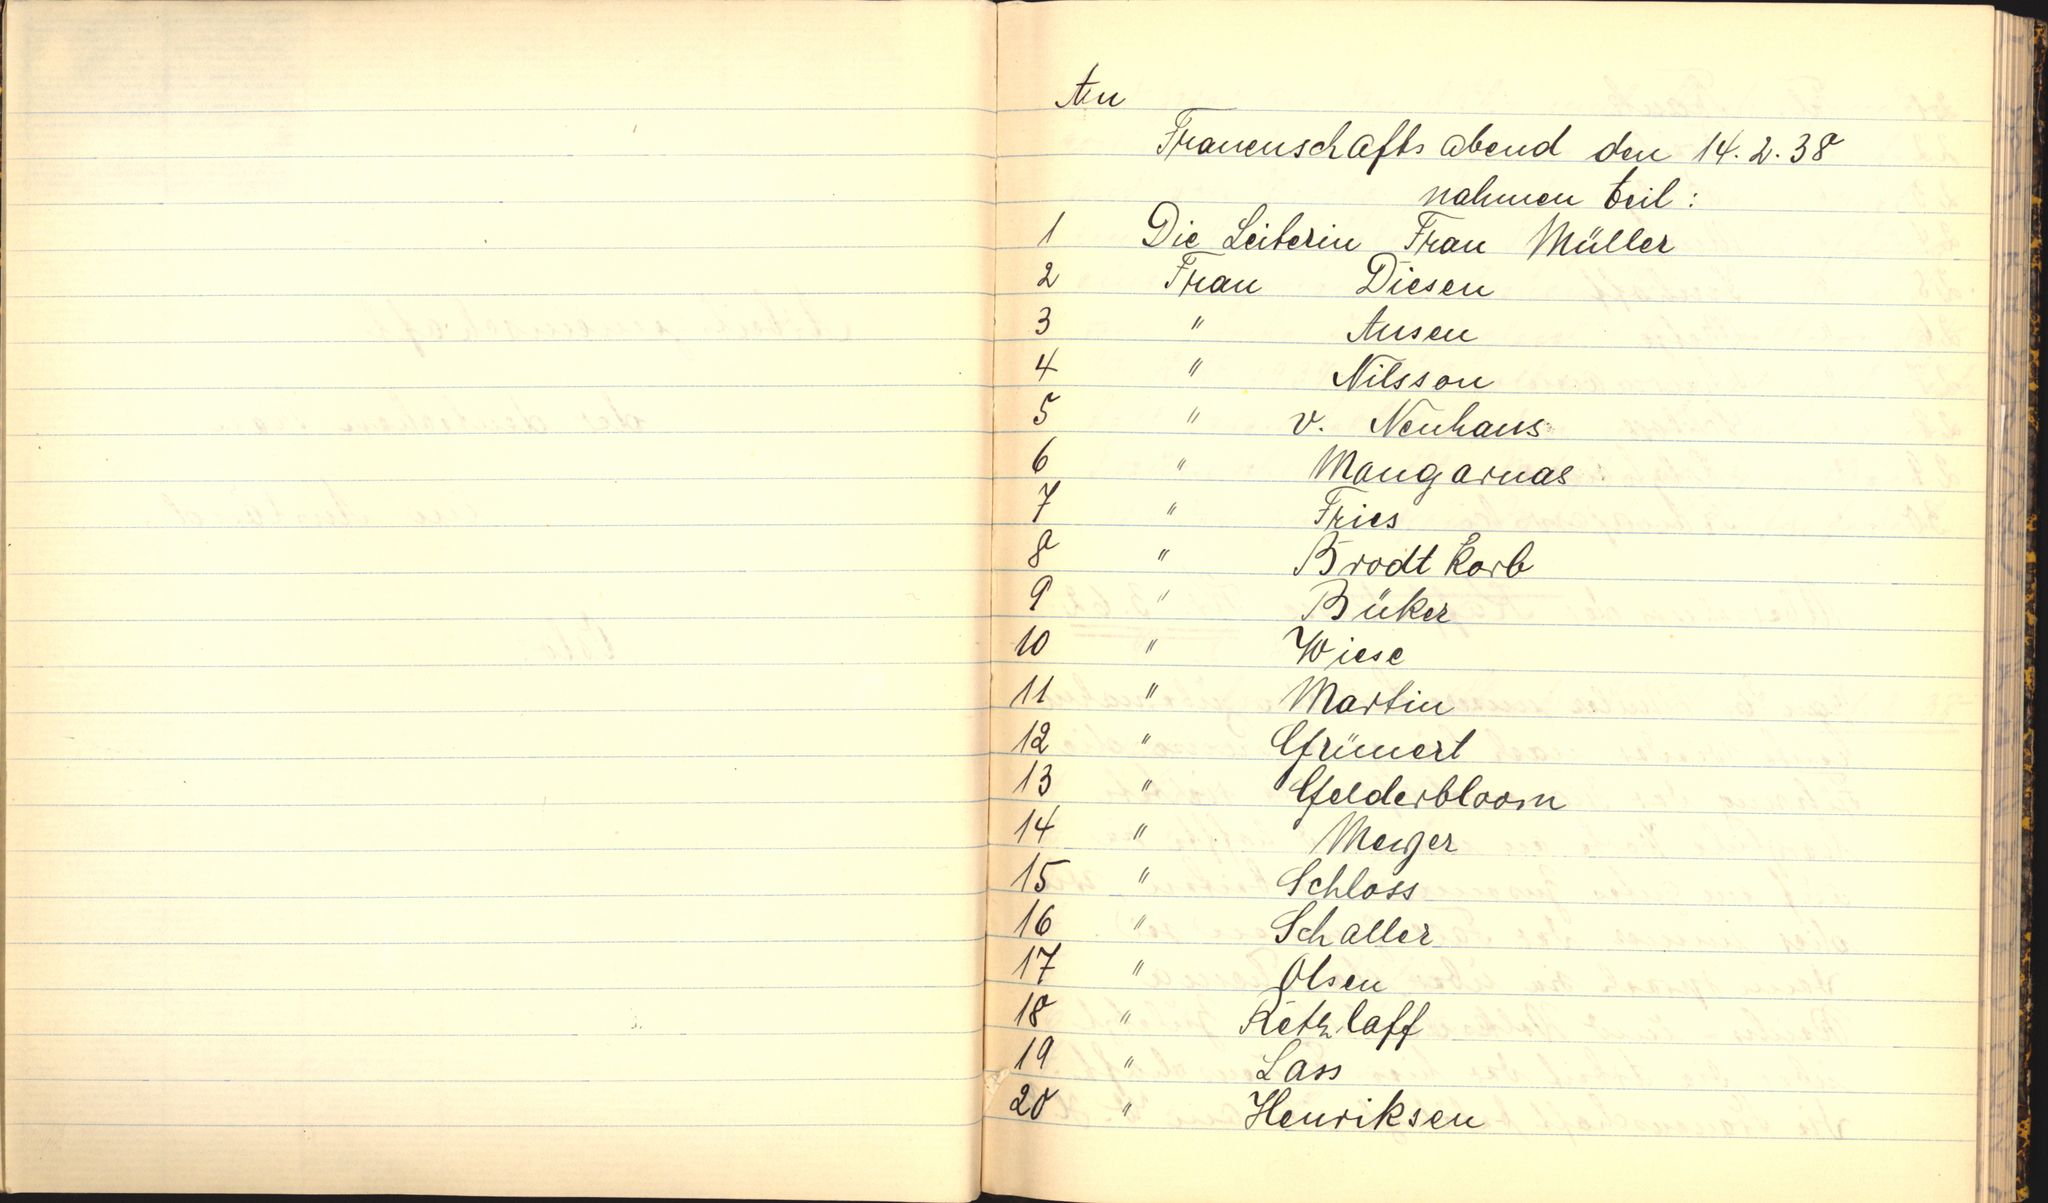 Am
Frauenschaftsabend den 14.2.38
nahmen teil:
1 Die Leiterin Frau Müller
2 Frau Diesen
3 " Ausen
4 " Nilsson
5 " v. Neuhaus
6 " Mangarnas
7 " Fries
8 " Brodtkorb
9 " Büker
10 " Wiese
11 " Martin
12 " Grünert
13 " Gelderbloom
14 " Meyer
15 " Schloss
16 " Schaller
17 " Olsen
18 " Retzlaff
19 " Lass
20 " Henriksen